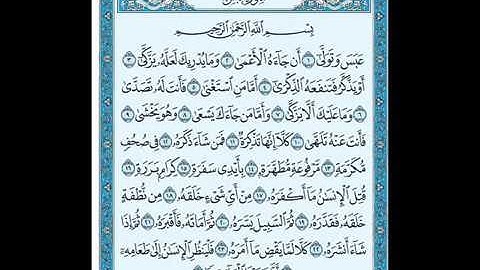 بِسْمِ اللَّهِ الرَّحْمَٰنِ الرَّحِيمِ
عَبَسَ وَتَوَلَّىٰ ١ أَن جَاءَهُ الْأَعْمَىٰ ٢ وَمَا يُدْرِيكَ لَعَلَّهُ يَزَّكَّىٰ ٣
أَوْ يَذَّكَّرُ فَتَنفَعَهُ الذِّكْرَىٰ ٤ أَمَّا مَنِ اسْتَغْنَىٰ ٥ فَأَنتَ لَهُ تَصَدَّىٰ
٦ وَمَا عَلَيْكَ أَلَّا يَزَّكَّىٰ ٧ وَأَمَّا مَن جَاءَكَ يَسْعَىٰ ٨ وَهُوَ يَخْشَىٰ ٩
فَأَنتَ عَنْهُ تَلَهَّىٰ ١٠ كَلَّا إِنَّهَا تَذْكِرَةٌ ١١ فَمَن شَاءَ ذَكَرَهُ ١٢ فِي صُحُفٍ
مُّكَرَّمَةٍ ١٣ مَّرْفُوعَةٍ مُّطَهَّرَةٍ ١٤ بِأَيْدِي سَفَرَةٍ ١٥ كِرَامٍ بَرَرَةٍ ١٦
قُتِلَ الْإِنسَانُ مَا أَكْفَرَهُ ١٧ مِنْ أَيِّ شَيْءٍ خَلَقَهُ ١٨ مِن نُّطْفَةٍ
خَلَقَهُ فَقَدَّرَهُ ١٩ ثُمَّ السَّبِيلَ يَسَّرَهُ ٢٠ ثُمَّ أَمَاتَهُ فَأَقْبَرَهُ ٢١ ثُمَّ إِذَا
شَاءَ أَنشَرَهُ ٢٢ كَلَّا لَمَّا يَقْضِ مَا أَمَرَهُ ٢٣ فَلْيَنظُرِ الْإِنسَانُ إِلَىٰ طَعَامِهِ